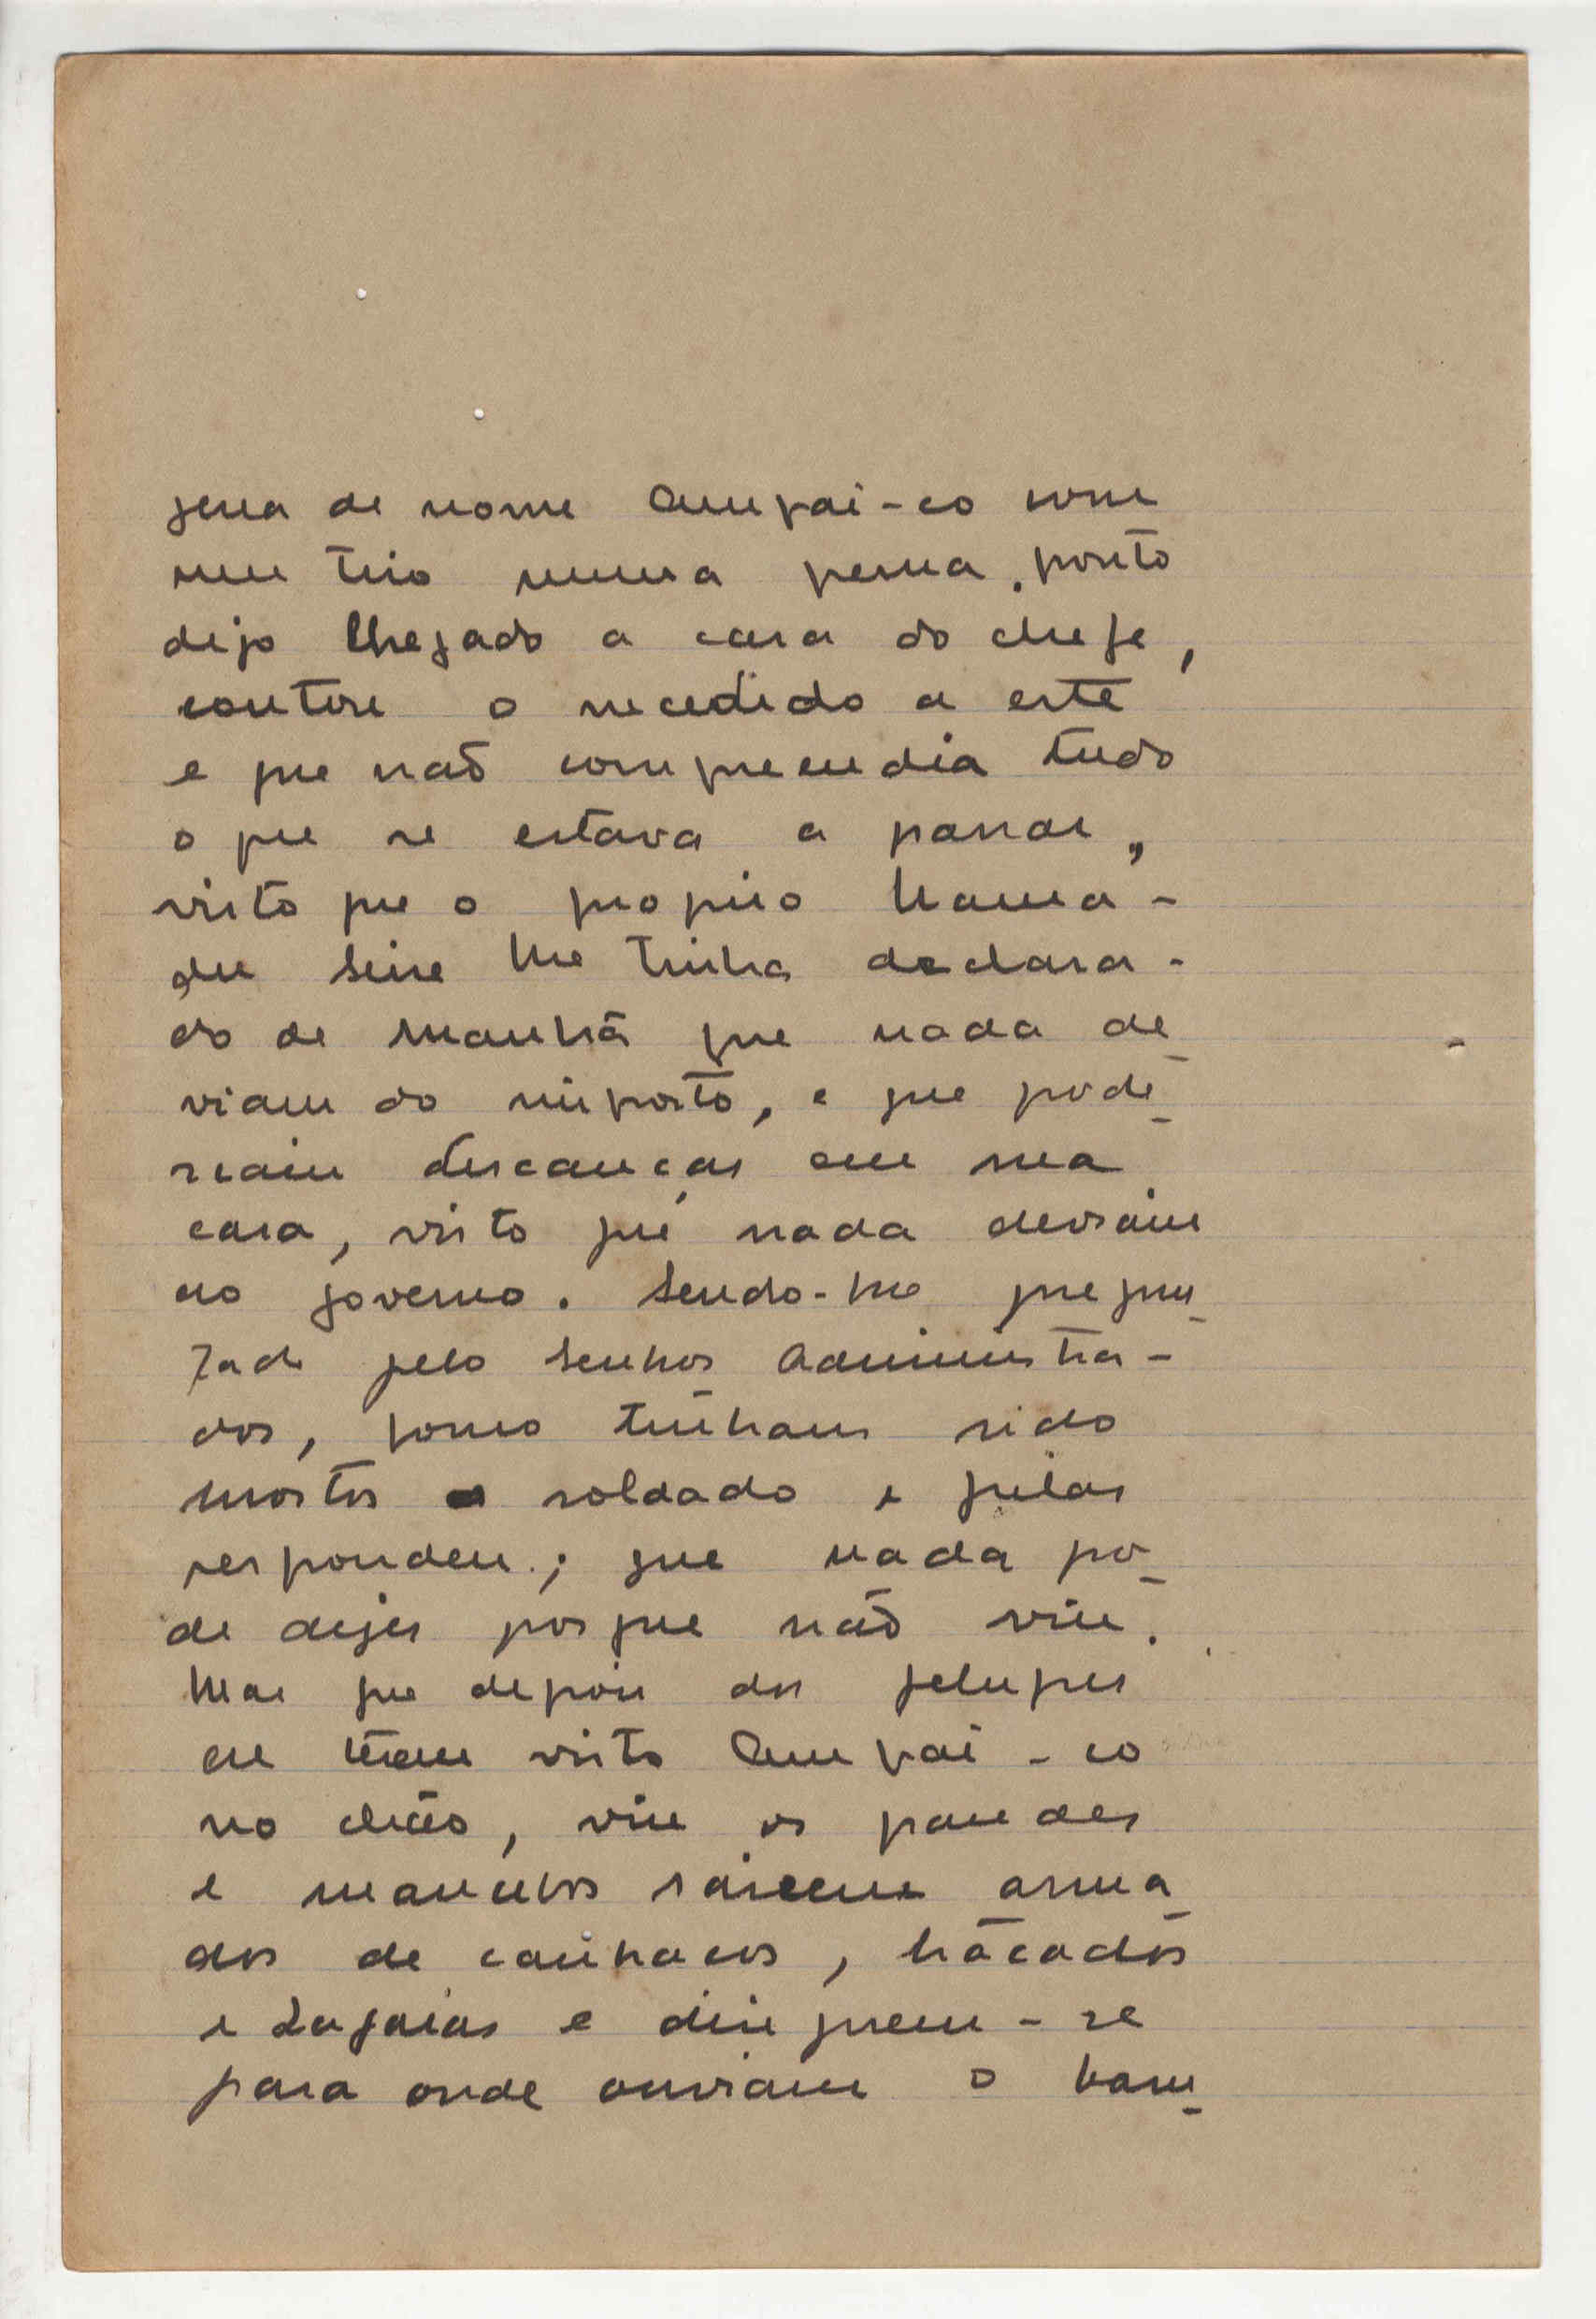 gena de nome Ampai-có com
um tiro numa perna. ponto
dijo Chegado a casa do chefe,
contou o sucedido a este
e que não compreendia tudo
o que se estava a passar,
visto que o proprio Mama-
du Seine lhe tinha declara-
do de manhã que nada de_
viam do imposto, e que pode_
riam descançar em sua
casa, visto que nada deviam
ao governo. Sendo-lhe pregun_
tado pelo Senhor Administra-
dor, como tinham sido
mortos o soldado e guias
respondeu; que nada po_
de dizer porque não viu.
Mas que depois dos felupes
em terem visto Ampai-co
no chão, viu os grandes
e mancebos sairem arma_
dos de canhacos,
e zagaias e dirigirem-se
para onde ouviam o bam_